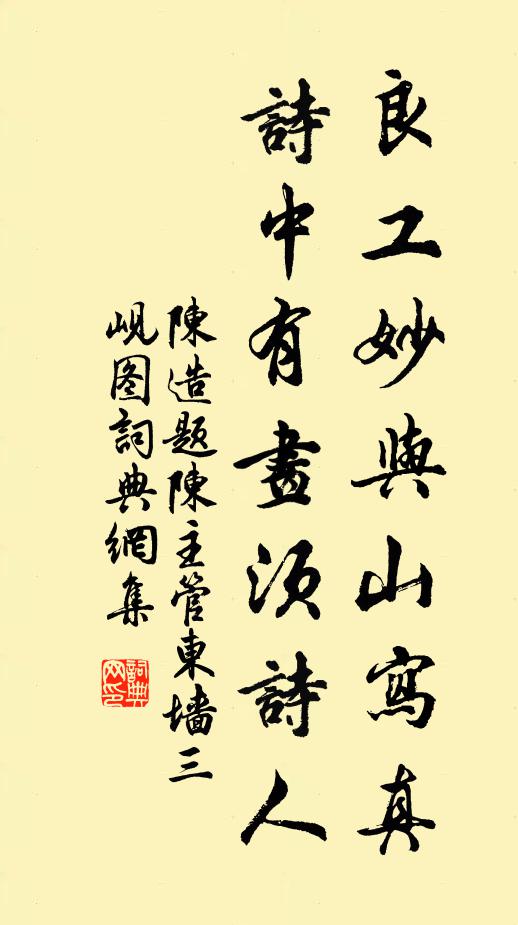 良工妙與山寫真
詩中有畫須詩人
陳造題陳主管東墻三
峴图詞典網集
詞典网印